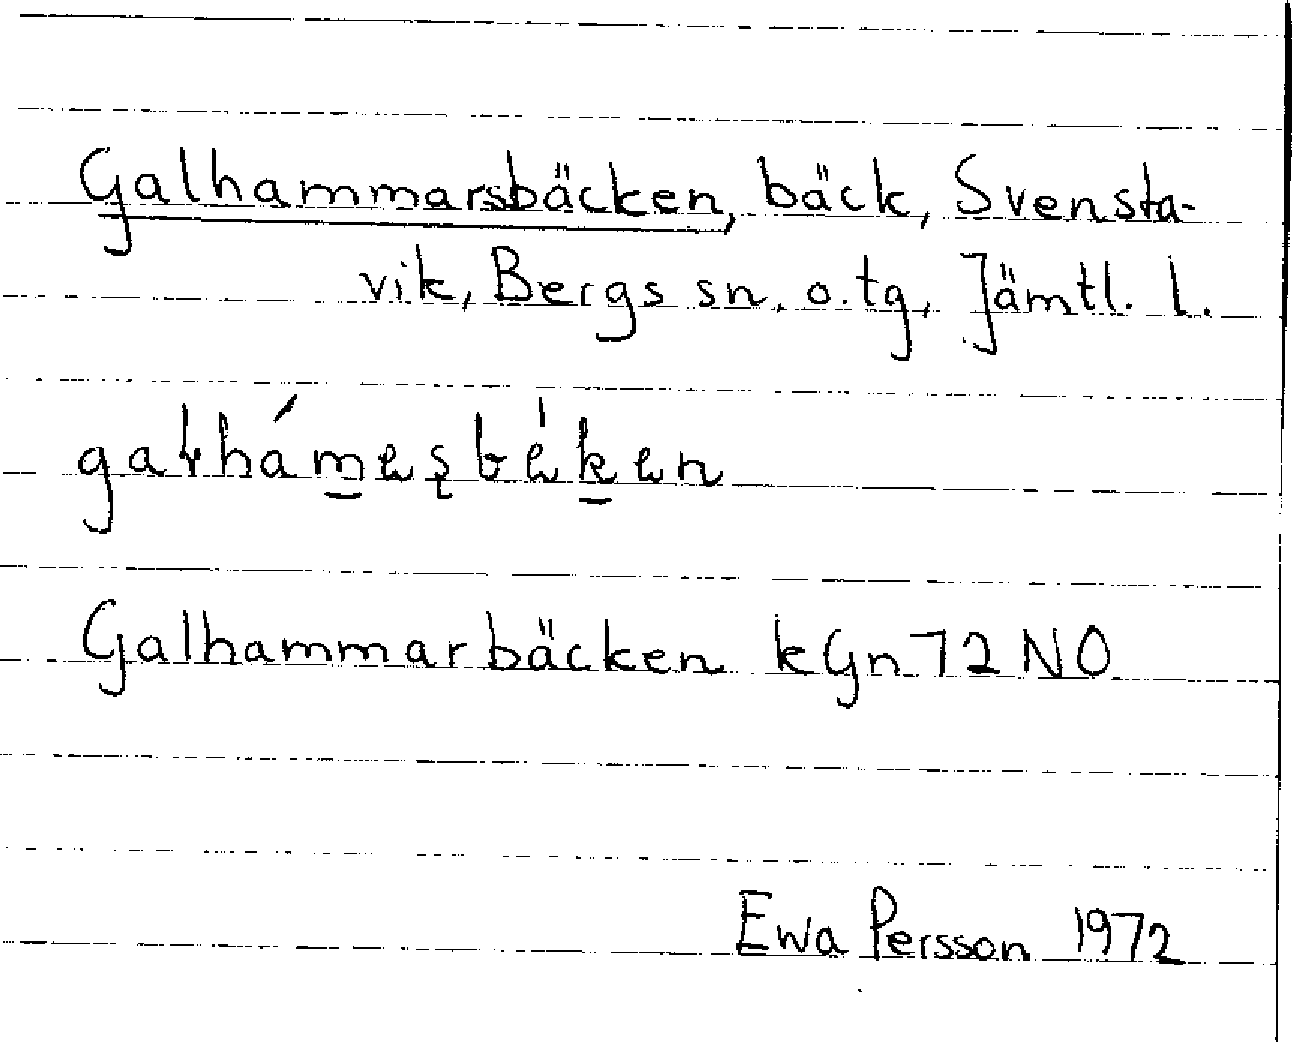 Galhammarsbäcken, bäck, Svensta-
vik, Bergs sn. o. tg, Jämtl. l.
gaɫháme̱ʂbéken
Galhammarbäcken kGn 72 NO
Ewa Persson 1972